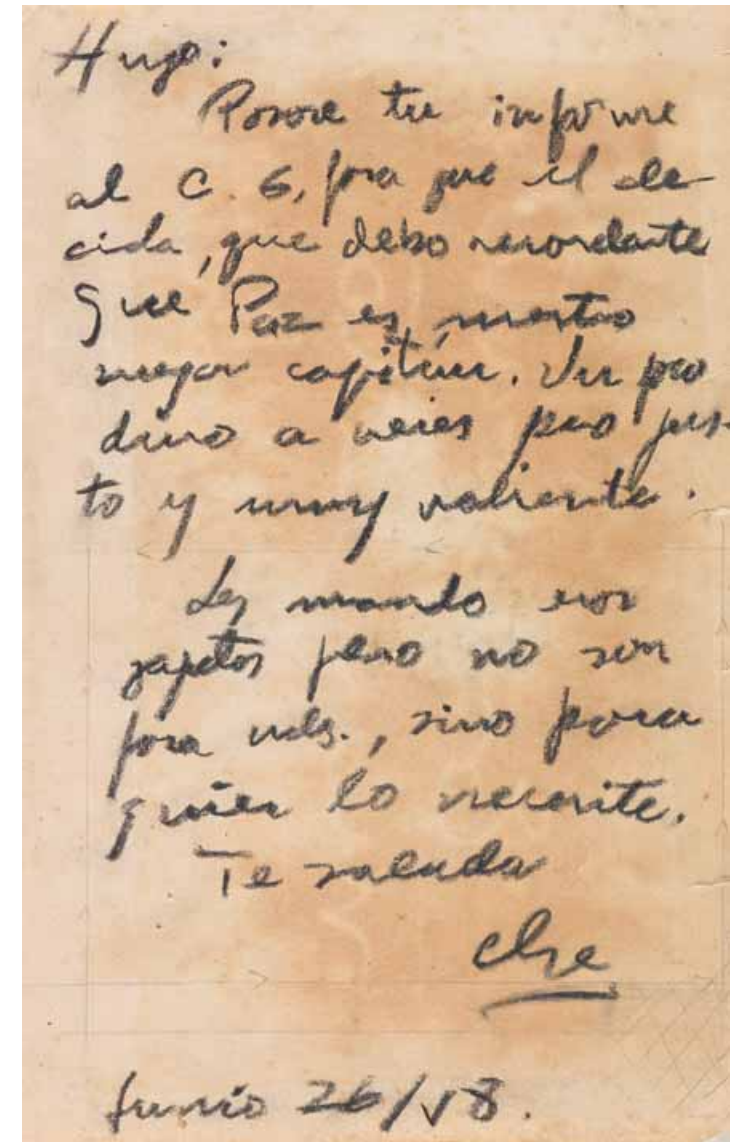 Hugo:
Pasaré tu informe
al C. G, para que él de-
cida, que debo recordarte
que Paz es nuestro
mejor capitán. Un poco
duro a veces pero jus-
to y muy valiente.
Les mando esos
zapatos pero no son
para uds., sino para
quien lo necesite.
Te saluda
Che
Junio 26/58.